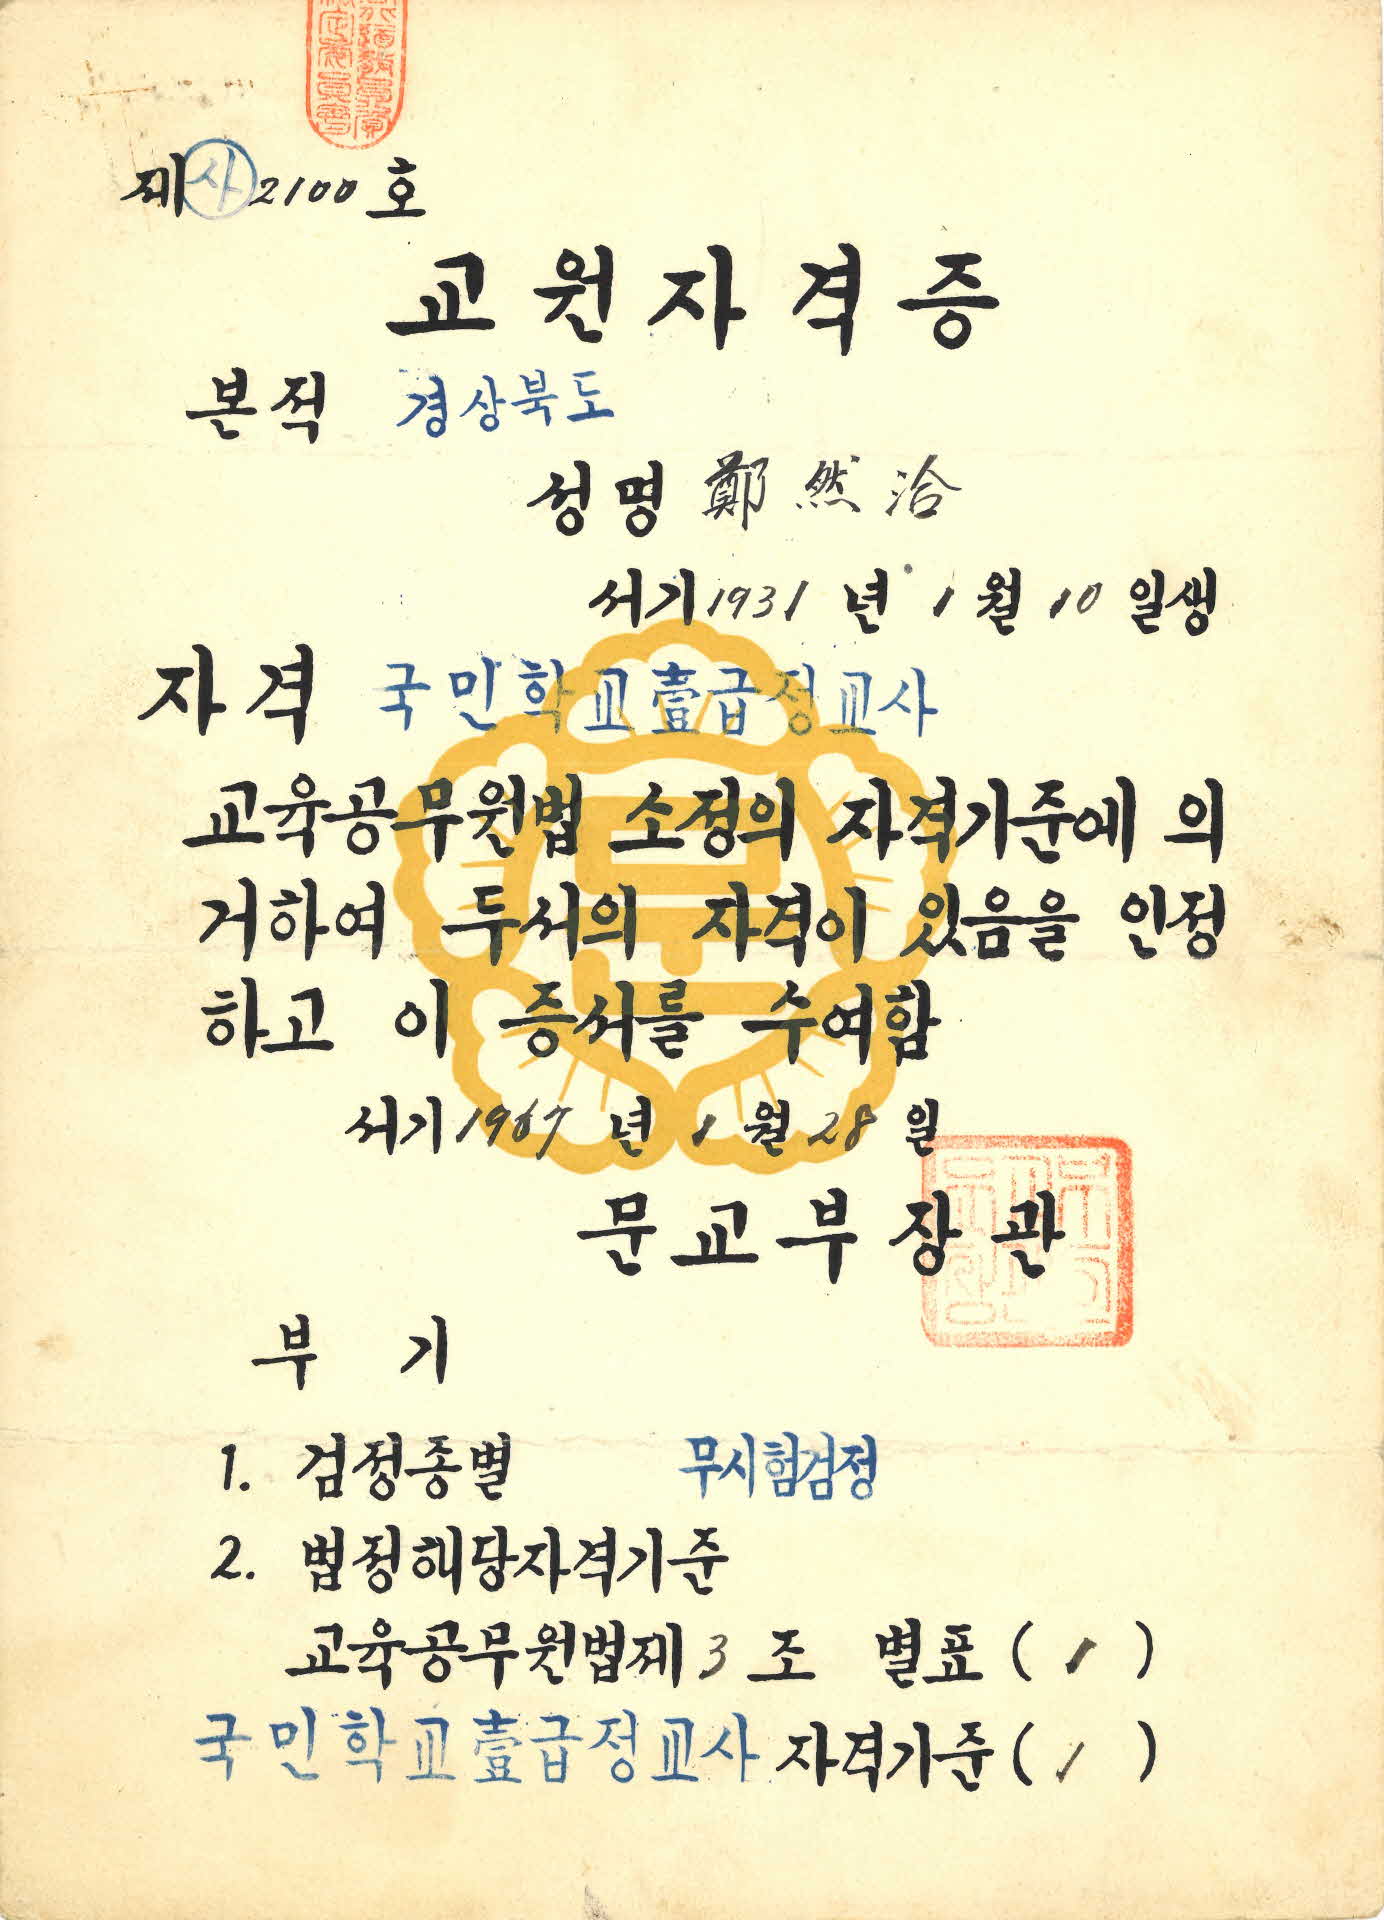 제 사 2100 호
교원자격증
본적 경상북도
성명 鄭然洽
서기 1931 년 1 월 10 일생
자격 국민학교壹급정교사
교육공무원법 소정의 자격기준에 의
거하여 두서의 자격이 있음을 인정
하고 이 증서를 수여함
서기 1967 년 1 월 28 일
문교부장관
부 기
1. 검정종별 무시험검정
2. 법정해당자격기준
교육공무원법제 3 조 별표 ( 1 )
국민학교壹급정교사 자격기준 ( 1 )